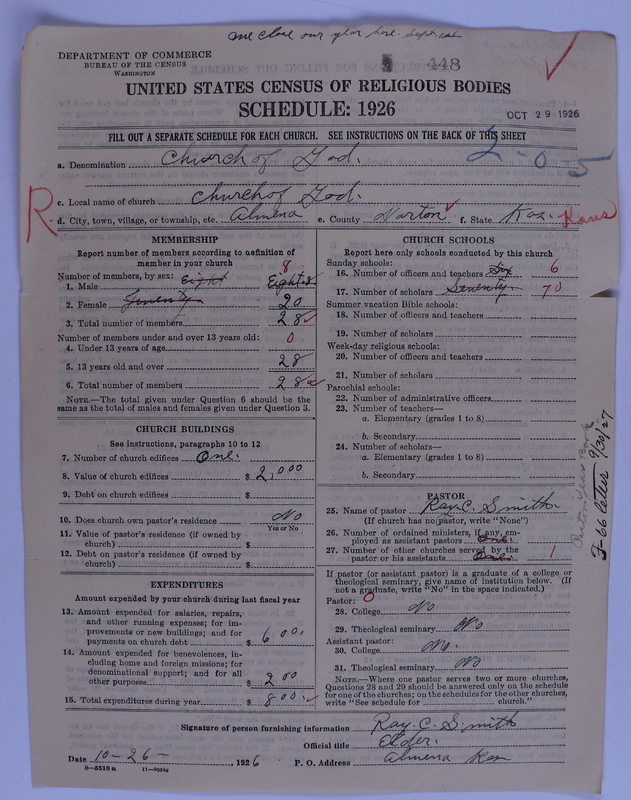 We close our year here. Sept. 1st
DEPARTMENT OF COMMERCE
BUREAU OF THE CENSUS
WASHINGTON
448
UNITED STATES CENSUS OF RELIGIOUS BODIES
SCHEDULE: 1926
OCT 29 1926
FILL OUT A SEPARATE SCHEDULE FOR EACH CHURCH. SEE INSTRUCTIONS ON THE BACK OF THIS SHEET
2-0-5
a. Denomination Church of God.
c. Local name of church Church of God.
R
d. City, town, village, or township, etc. Almena e. County Norton f. State Kas. Kans
MEMBERSHIP
Report number of members according to definition of
member in your church
Number of members, by sex: Eight 8
1. Male Eight 8
2. Female Twenty 20
3. Total number of members 28
Number of members under and over 13 years old: 0
4. Under 13 years of age
5. 13 years old and over 28
6. Total number of members 28
NOTE.—The total given under Question 6 should be the
same as the total of males and females given under Question 3.
CHURCH BUILDINGS
See instructions, paragraphs 10 to 12
7. Number of church edifices One.
8. Value of church edifices $ 2,000
9. Debt on church edifices $
10. Does church own pastor's residence No
Yes or No
11. Value of pastor's residence (if owned by
church) $
12. Debt on pastor's residence (if owned by
church) $
EXPENDITURES
Amount expended by your church during last fiscal year
13. Amount expended for salaries, repairs,
and other running expenses; for im-
provements or new buildings; and for
payments on church debt $ 600.
14. Amount expended for benevolences, in-
cluding home and foreign missions; for
denominational support; and for all
other purposes $ 200
15. Total expenditures during year $ 800.
CHURCH SCHOOLS
Report here only schools conducted by this church
Sunday schools:
16. Number of officers and teachers Six 6
17. Number of scholars Seventy. 70
Summer vacation Bible schools:
18. Number of officers and teachers
19. Number of scholars
Week-day religious schools:
20. Number of officers and teachers
21. Number of scholars
Parochial schools:
22. Number of administrative officers
23. Number of teachers—
a. Elementary (grades 1 to 8)
b. Secondary
24. Number of scholars—
a. Elementary (grades 1 to 8)
b. Secondary
PASTOR
25. Name of pastor Ray C. Smith.
(If church has no pastor, write "None")
26. Number of ordained ministers, if any, em-
ployed as assistant pastors One.
27. Number of other churches served by the
pastor or his assistants One. 1
If pastor (or assistant pastor) is a graduate of a college or
theological seminary, give name of institution below. (If
not a graduate, write "No" in the space indicated.)
Pastor: 0
28. College No
29. Theological seminary No
Assistant pastor:
30. College No.
31. Theological seminary No
NOTE.—Where one pastor serves two or more churches,
Questions 28 and 29 should be answered only on the schedule
for one of the churches; on the schedules for the other churches,
write "See schedule for church."
Signature of person furnishing information Ray. C. Smith
Official title Elder.
Date 10-26-, 1926 P. O. Address Almena Kan
8-5518a 11-9034a
9/30/27